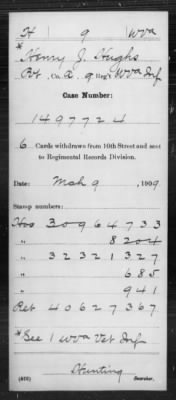 H 9 W Va
* Henry J. Hughs
Pvt., Co. A, 9 Reg't W Va Inf
Case Number:
1497724
6 Cards withdrawn from 10th Street and sent
to Regimental Records Division.
Date: Mch 9, 1909
Stamp numbers:
Hos 30964733
8204
" 32321327
" 685
" 941
Ret 40627367
* See 1 W Va Vet Inf
Hunting
Searcher.